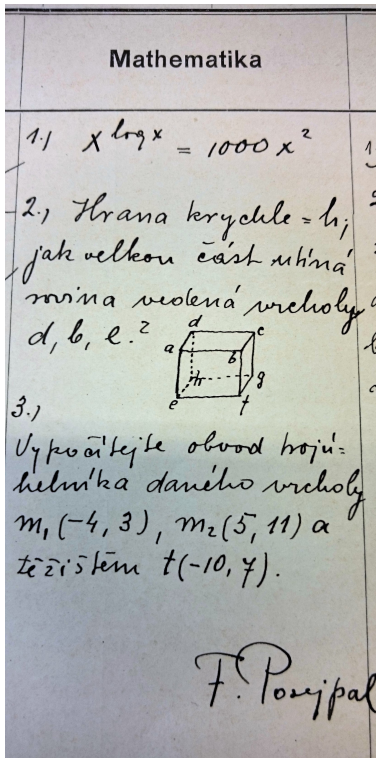 Mathematika
1.) x^log x = 1000 x²
2., Hrana krychle = h;
jak velkou část utíná
rovina vedená vrcholy
d, b, e.?
d
c
a
b
h
g
e
f
3.,
Vypočítejte obvod trojú=
helníka daného vrcholy
m₁ (-4, 3), m₂ (5, 11) a
těžištěm t (-10, 7).
F. Posejpal